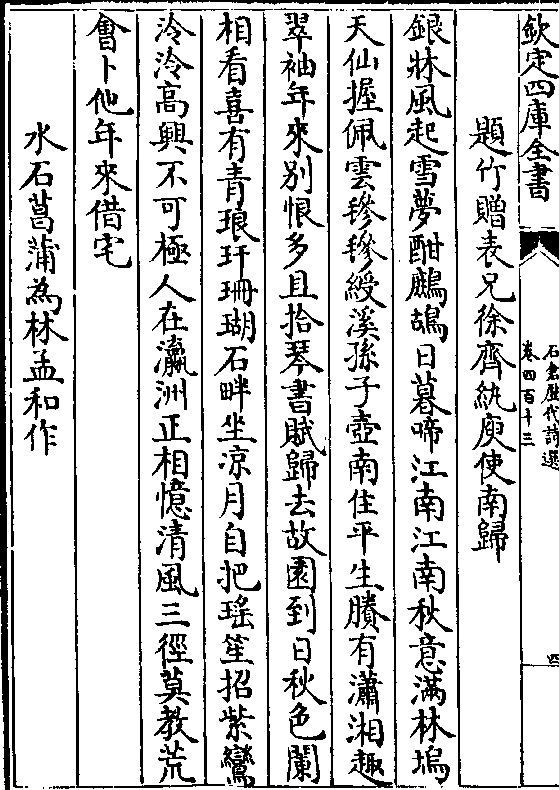 欽定四庫全書
石倉歷代詩選
卷四百十三
四
題竹贈表兄徐齊紈庾使南歸
銀牀風起雪夢酣鷓鴣日暮啼江南江南秋意滿林塢
天仙握佩雲毿毿綬溪孫子壺南住平生賸有瀟湘趣
翠袖年來别恨多且拾琴書賦歸去故園到日秋色闌
相看喜有青琅玕珊瑚石畔坐凉月自把瑶笙招紫鸞
泠泠高興不可極人在瀛洲正相憶清風三徑莫教荒
會卜他年來借宅
水石菖蒲為林孟和作